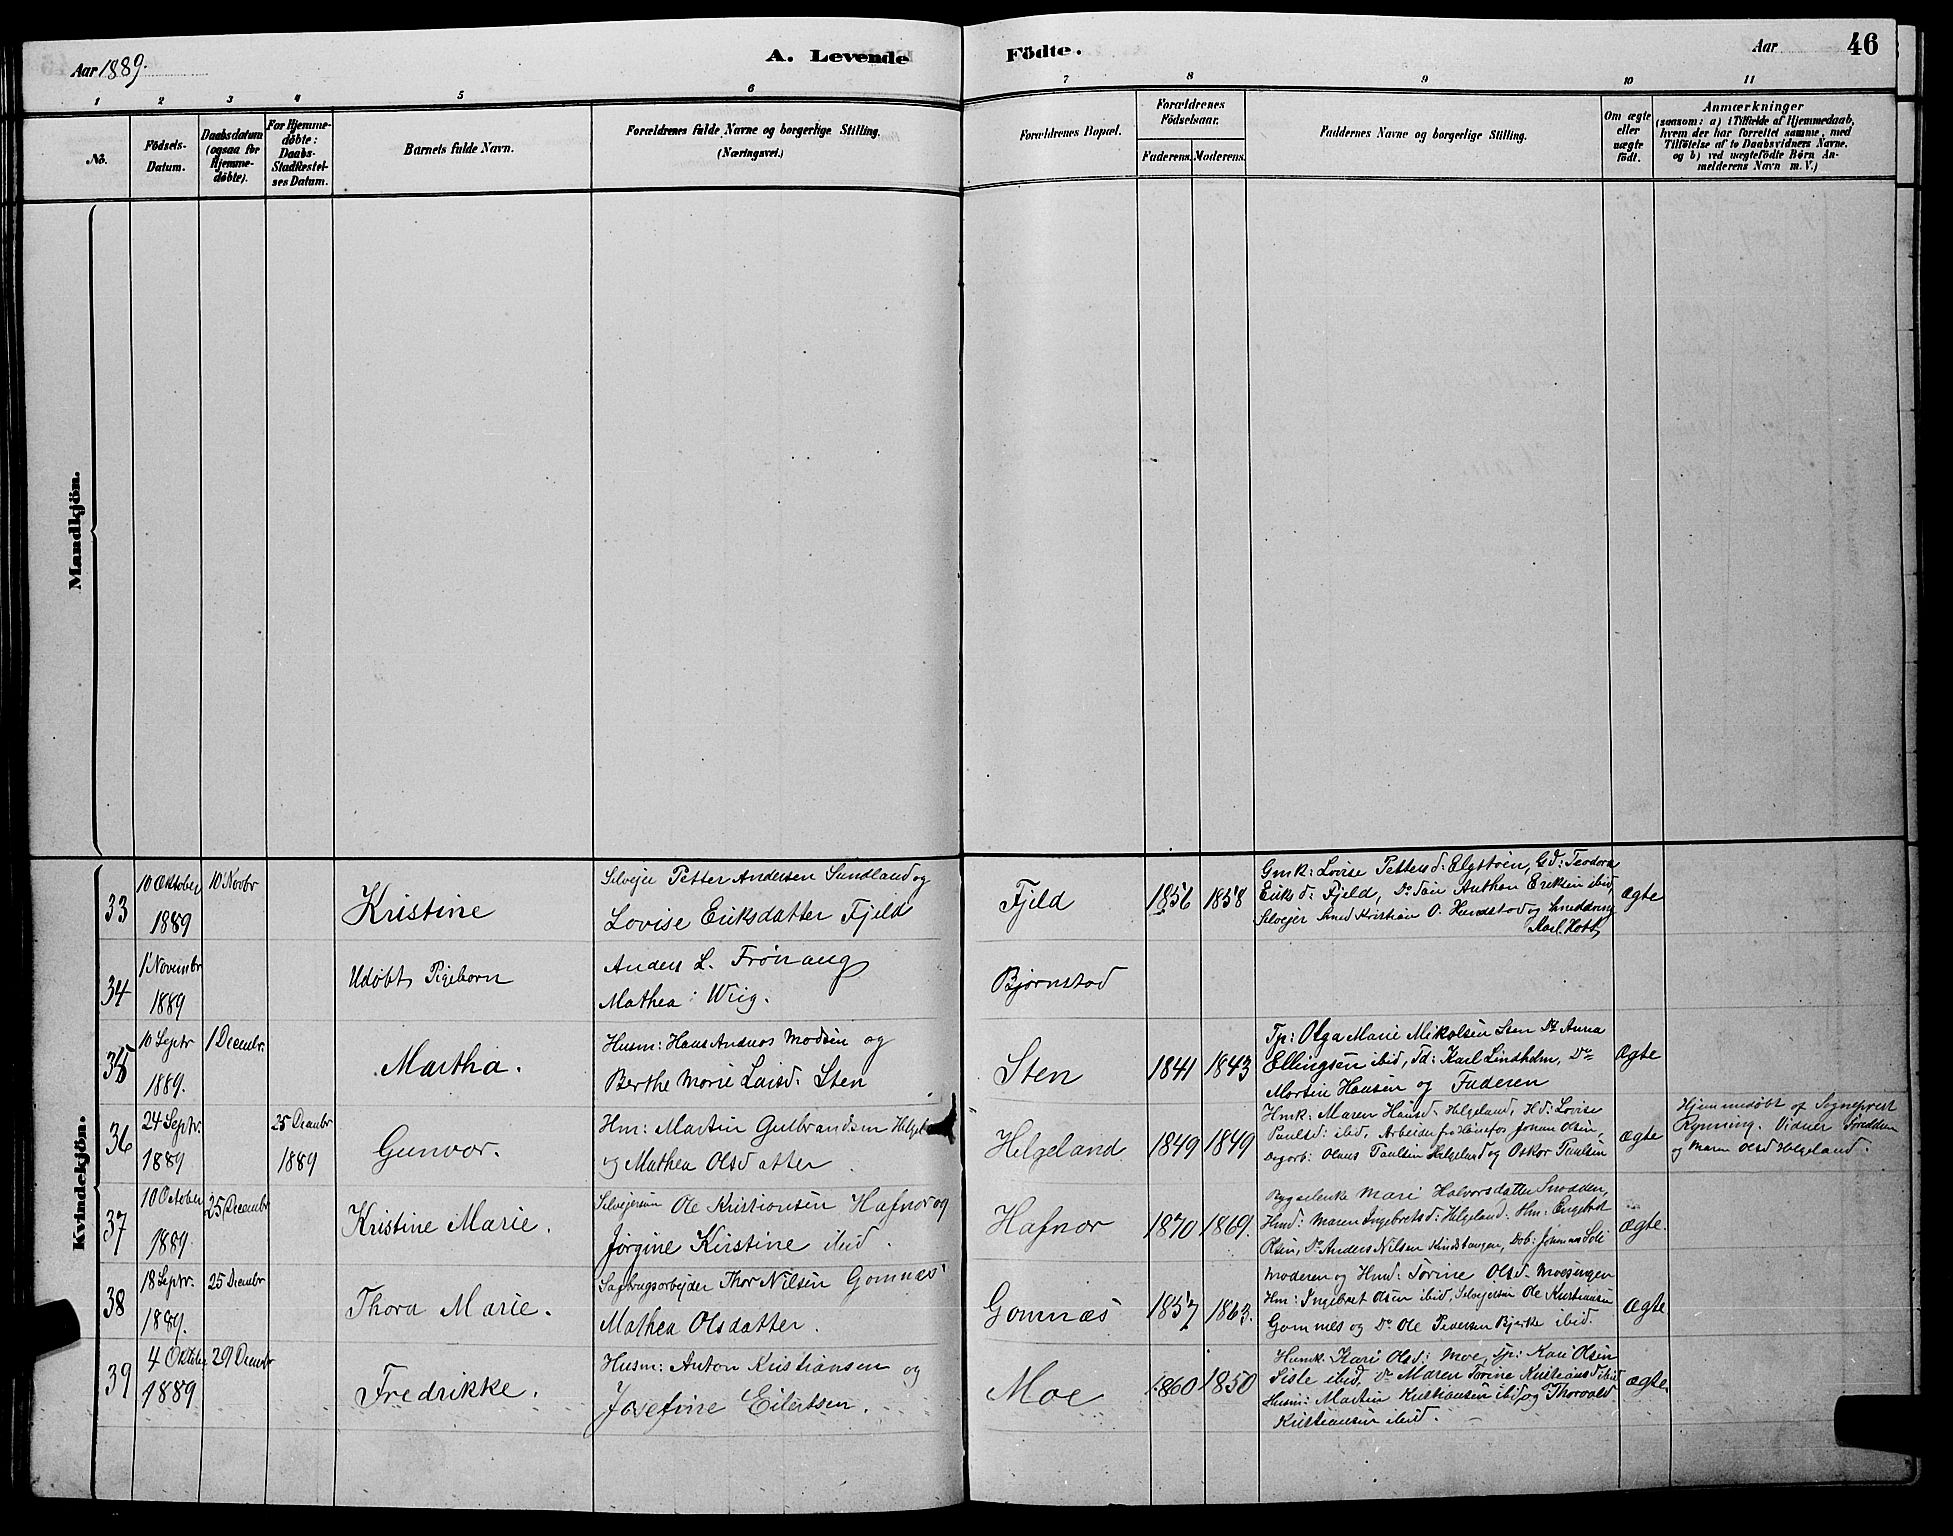 Aar 1889.
A. Levende
Födte.
Aar
46
1
2
3
4
5
6
7
8
9
10
11
No.
Födsels-
Datum.
Daabsdatum
(ogsaa for
Hjemme-
döbte).
For Hjemme-
döbte:
Daabs-
Stadfæstel-
ses Datum.
Barnets fulde Navn.
Forældrenes fulde Navne og borgerlige Stilling.
(Næringsvei.)
Forældrenes Bopæl.
Forældrenes
Födselsaar.
Faderens.
Moderens.
Faddernes Navne og borgerlige Stilling.
Om ægte
eller
uægte
födt.
Anmærkninger
(saasom: a) i Tilfælde af Hjemmedaab,
hvem der har forrettet samme, med
Tilföielse af to Daabsvidners Navne.
og b) ved uægtefödte Börn An-
melderens Navn m. V.)
Mandkjön.
Kvindekjön.
33
10 Oktober
1889
10 Novbr
Kristine
Selvejer Petter Andersen Sundland og
Lovise Eriksdatter Fjeld
Fjeld
1856
1858
Gmk: Lovise Pettersd: Gd: Teodora
Eriksd: Fjeld, Do Anthon Eriksen ibid
Selvejer Kristian O. Hundstad og
Karl
ægte
34
1 Novembr
1889
Udøbt Pigebarn
Anders L. Frønaug
Mathea Wiig.
Bjørnstad
35
10 Septr
1889.
1 Decembr.
Martha.
Husm: Hans Andreas Madsen og
Berthe Marie Larsd: Sten
Sten
1841
1843
Tp: Olga Marie Mikalsen Sten Do Anna
Ellingsen ibid, Td: Karl Lindholm, Do
Martin Hansen og Faderen
Ægte
36
24 Septr.
1889
25 Decembr
1889
Gunvor.
Hm: Martin Gulbrandsen
og Mathea Olsdatter.
Helgeland
1849
1849
Hmk: Maren Hansd. Helgeland, Hd: Lovise
Paulsd: ibid, Arbeider Johan Olsen,
Olaus Paulsen Helgeland og Oskar Paulsen
ægte
Hjemmedøbt af Sogneprest
Rynning. Vidner
og Maren Olsd Helgeland.
37
10 October
1889.
25 Decembr
Kristine Marie.
Selvejersøn Ole Kristiansen Hafnor og
Jørgine Kirstine ibid.
Hafnor
1870
1869.
Mari Halvorsdatter
Hmd: Maren Ingebretsd: Helgeland. Hm: Engebret
Olsen, Do Anders Nilsen
Ægte.
38
18 Septr.
1889.
25 Decembr
Thora Marie.
Sagbrugsarbejder Thor Nilsen Gomnæs
Mathea Olsdatter.
Gomnæs
1857
1863.
Moderen og Hmd: Torine Olsd. Moesengen
Hm: Ingebret Olsen ibid, Selvejersøn Ole Kristiansen
Gomnes og Do Ole Pedersen Bjerke ibid.
Ægte
39
4 Oktober
1889
29 Decembr
Fredrikke.
Husm: Anton Kristiansen og
Josefine Eilertsen.
Moe
1860
1850
Husmk. Kari Olsd: Moe, Tp: Kari Olsen
ibid, Do Maren Torine Kristiansd ibid
Husm: Martin Kristiansen ibid, og Thorvald
Kristiansen ibid.
ægte